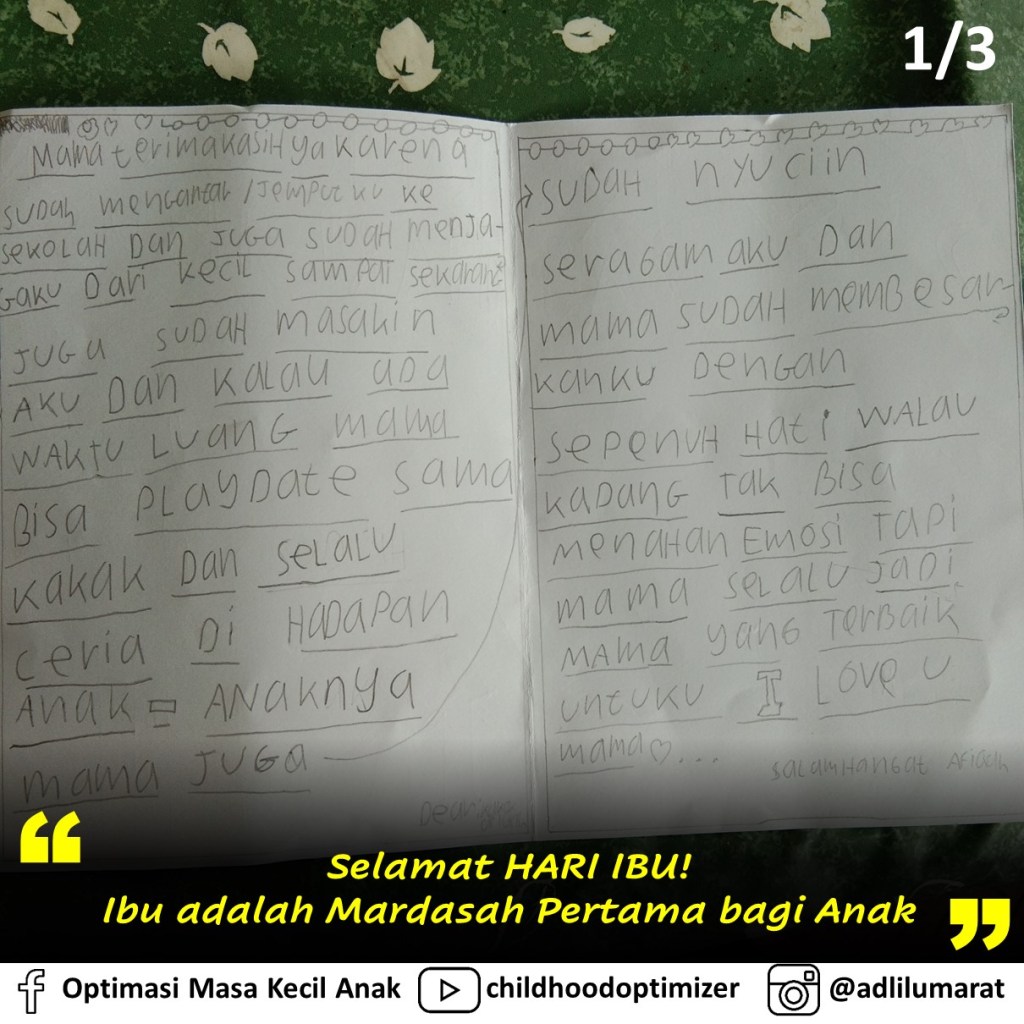 1/3
Mama terimakasih ya karena
SUDAH mengantar/Jemput ku ke
sekolah Dan JUGA SUDAH menja-
gaku Dari kecil sampai sekarang
JUGA SUDAH masakin
AKU Dan KALAU ADA
WAKTU LUANG mama
Bisa PLAYDate sama
KaKaK Dan SeLALU
ceria Di HADAPAN
ANAK = ANAKNYA
mama JUGA
SUDAH nyuciin
seragam aku Dan
mama SUDAH memBesar-
kanku Dengan
sepenuh Hati WALAU
KADANG tak Bisa
menahan Emosi TAPi
mama seLALU JADi
MAma yang TerBaik
untuku I Love U
mama ♡...
salam Hangat Afiqah
Selamat HARI IBU!
Ibu adalah Mardasah Pertama bagi Anak
Optimasi Masa Kecil Anak childhoodoptimizer @adlilumarat